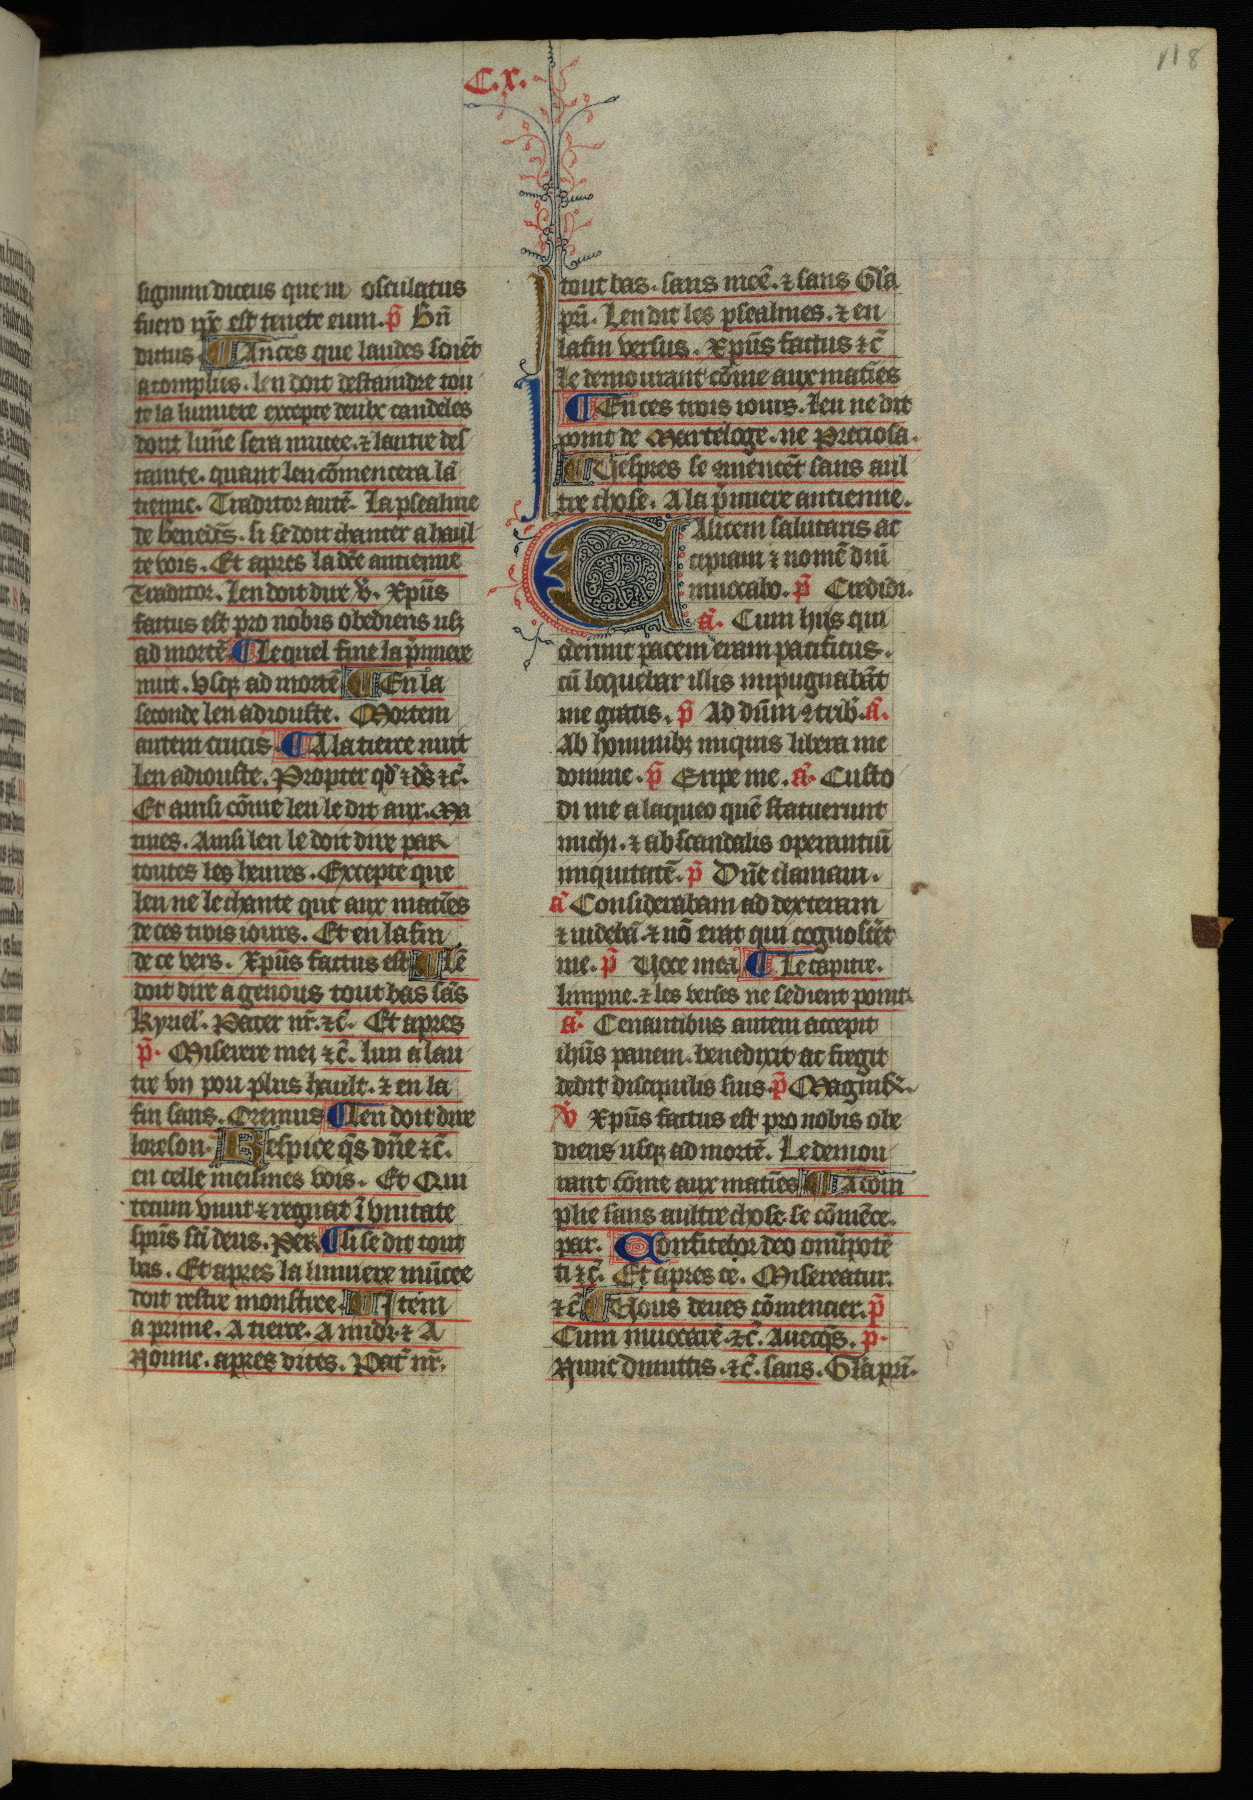 C.x.
118
signum dicens quem osculatus
fuero ip̄e est tenete eum. p̄ Bn̄
dictus ¶ Ainces que laudes soiēt
acomplies. len doit destaindre tou
te la lumiere excepte deulx candeles
dont lune sera mucee. ⁊ lautre des
tainte. quant len cōmencera lā
tienne. Traditor autē. La psealme
de benedc̄s. si se doit chanter a haul
te vois. Et apres la dc̄e antienne
Traditor. Len doit dire v̄. Xpūs
factus est pro nobis obediens usꝫ
ad mortē ¶ Lequel fine la p̄miere
nuit. vsqꝫ ad mortē ¶ En la
seconde len adiouste. Mortem
autem crucis ¶ A la tierce nuit
len adiouste. Propter qd̄ ⁊ ds̄ ⁊c̄.
Et ainsi cōme len le dit aux. Ma
tines. Ainsi len le doit dire par
toutes les heures. Excepte que
len ne le chante que aux matīes
de ces trois iours. Et en la fin
de ce vers. Xpūs factus est ¶ lē
doit dire a genous tout bas sās
kyriel̄. Pater nr̄. ⁊c̄. Et apres
p̄. Miserere mei ⁊c̄. lun a lau
tre vn pou plus hault. ⁊ en la
fin sans. Oremus ¶ len doit dire
loreson. Respice qs̄ dn̄e ⁊c̄.
en celle meismes vois. Et Qui
tecum viuit ⁊ regnat ī vnitate
spūs sc̄i deus. per ¶ si se dit tout
bas. Et apres la lumiere mūcee
doit restre monstree. ¶ Item
a prime. A tierce. A midi. ⁊ A
Nonne. apres dites. Pat̄ nr̄.
tout bas. sans mcē. ⁊ sans Gl̄a
pr̄i. Len dit les psealmes. ⁊ en
la fin versus. Xpūs factus ⁊c̄
le demourant cōme aux matīes
¶ En ces trois iours. len ne dit
point de Marteloge. ne Preciosa.
¶ Vespres se ꝯmencēt sans aul
tre chose. A la p̄miere antienne.
Calicem salutaris ac
cipiam ⁊ nomē dn̄i
inuocabo. p̄ Credidi.
a. Cum hiis qui
oderunt pacem eram pacificus.
cū loquebar illis impugnabāt
me gratis. p̄ Ad dūm ⁊ trib̄. a.
Ab hominibꝫ iniquis libera me
domine. p̄ Eripe me. a. Custo
di me a laqueo quē statuerunt
michi. ⁊ ab scandalis operantiū
iniquitatē. p̄ Dn̄e clamaui.
a Considerabam ad dexteram
⁊ uidebā. ⁊ nō erat qui cognoscēt
me. p̄ Uoce mea ¶ Le capitre.
limpne. ⁊ les verses ne se dient point
a. Cenantibus autem accepit
ihūs panem. benedixit ac fregit
dedit discipulis suis. p̄ Magnifi.
v̄ Xpūs factus est pro nobis obe
diens usqꝫ ad mortē. Le demou
rant cōme aux matīes ¶ A com
plie sans aultre chose se cōmēce.
par. Confitebor deo om̄ipotē
ti ⁊c̄. Et apres ce. Misereatur.
⁊c̄ ¶ Uous deues cōmencier. p̄
Cum inuocarē. ⁊c̄. Auecq̄s. p.
Nunc dimittis. ⁊c̄. sans. Gl̄a pr̄i.